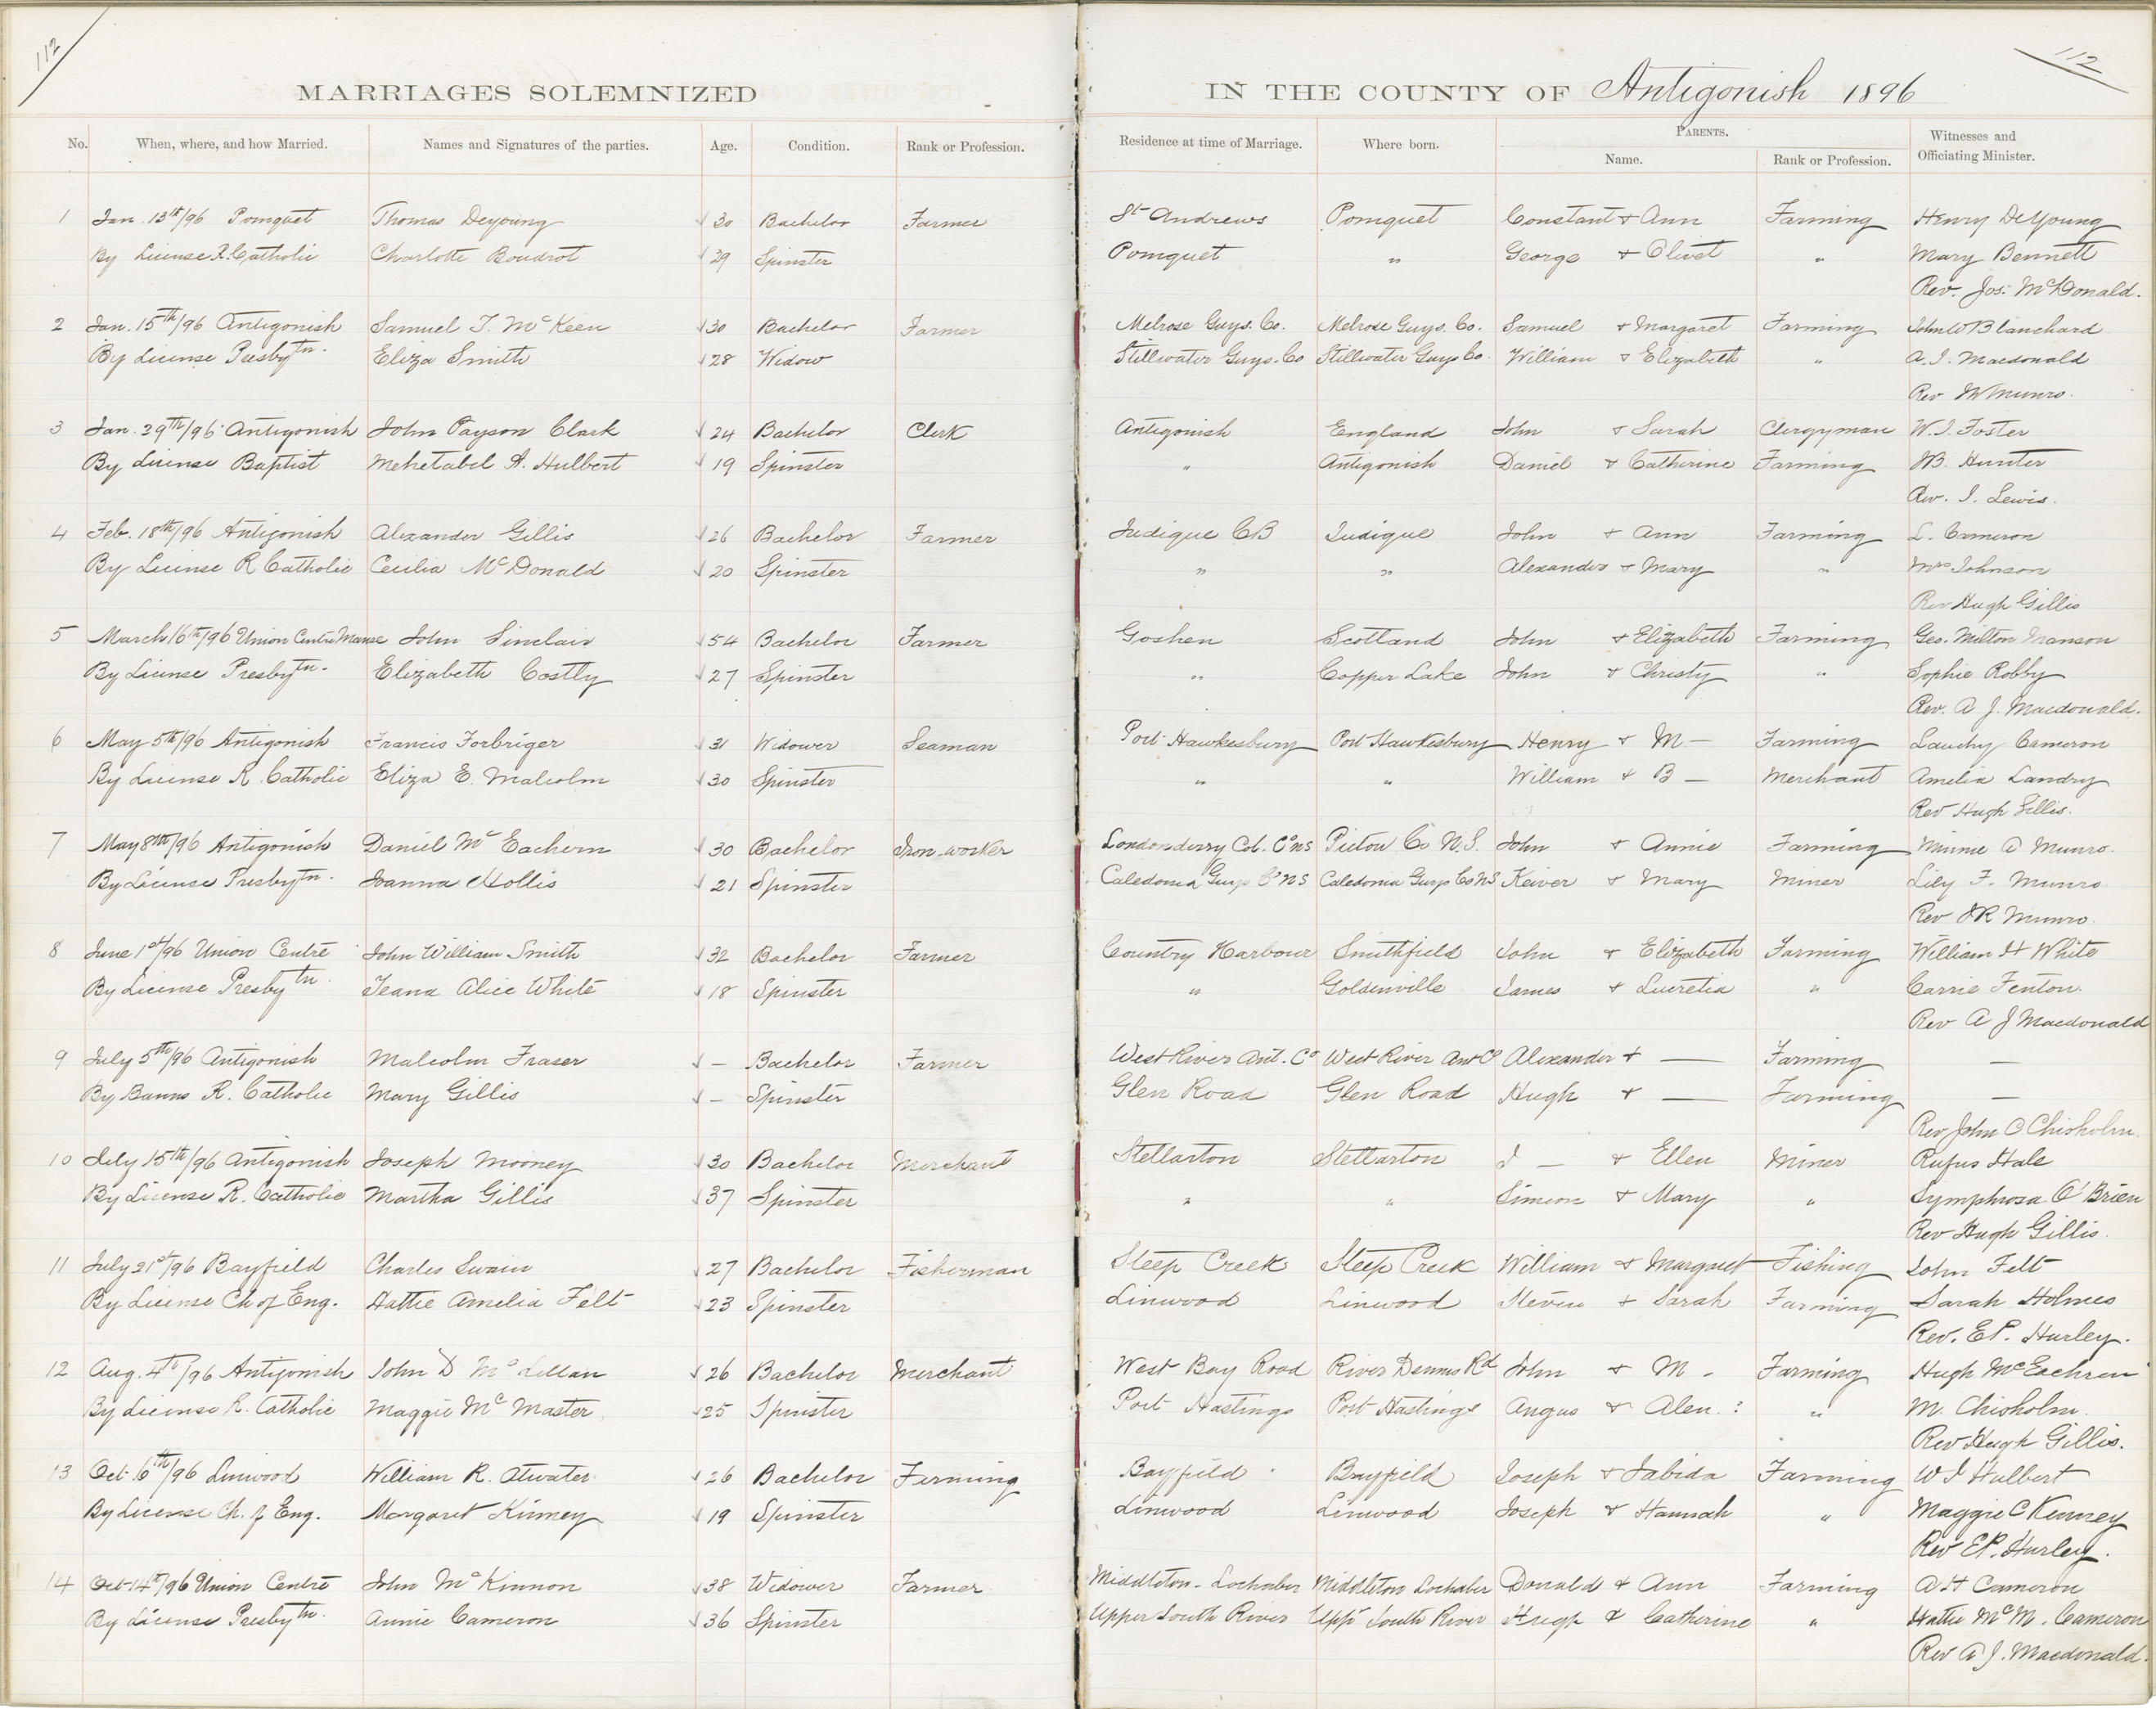 112
112
MARRIAGES SOLEMNIZED IN THE COUNTY OF Antigonish 1896
No. When, where, and how Married. Names and Signatures of the parties. Age. Condition. Rank or Profession. Residence at time of Marriage. Where born. PARENTS. Name. Rank or Profession. Witnesses and Officiating Minister.
1 Jan. 13th/96 Pomquet Thomas Deyoung √ 30 Bachelor Farmer St Andrews Pomquet Constant & Ann Farming Henry DeYoung
By License R. Catholic Charlotte Boudrot √ 29 Spinster Pomquet " George & Olivet " Mary Bennett
Rev. Jos. McDonald.
2 Jan. 15th/96 Antigonish Samuel T. McKeen √ 30 Bachelor Farmer Melrose Guys. Co. Melrose Guys. Co. Samuel & Margaret Farming John W Blanchard
By License Presbytn. Eliza Smith √ 28 Widow Stillwater Guys. Co Stillwater Guys Co. William & Elizabeth " A. I. Macdonald
Rev Munro.
3 Jan. 29th/96 Antigonish John Payson Clark √ 24 Bachelor Clerk Antigonish England John & Sarah Clergyman W. I. Foster
By License Baptist Mehetabel A. Hulbert √ 19 Spinster " Antigonish Daniel & Catherine Farming JB. Hunter
Rev. I. Lewis.
4 Feb. 18th/96 Antigonish Alexander Gillis √ 26 Bachelor Farmer Judique CB Judique John & Ann Farming L. Cameron
By License R Catholic Cecilia McDonald √ 20 Spinster " " Alexander & Mary " Mrs Johnson
Rev Hugh Gillis
5 March 16th/96 Union Centre Manse John Sinclair √ 54 Bachelor Farmer Goshen Scotland John & Elizabeth Farming Geo. Milton
By License Presbytn. Elizabeth Costly √ 27 Spinster " Copper Lake John & Christy " Sophie Robby
Rev. A J. Macdonald.
6 May 5th/96 Antigonish Francis Forbriger √ 31 Widower Seaman Port Hawkesbury Port Hawkesbury Henry & M. — Farming Lauchy Cameron
By License R. Catholic Eliza E. Malcolm √ 30 Spinster " " William & B — Merchant Amelia Landry
Rev Hugh Gillis.
7 May 8th/96 Antigonish Daniel McEachern √ 30 Bachelor Iron-worker Londonderry Col. Co NS Pictou Co N.S. John & Annie Farming Minnie A Munro.
By License Presbytn. Joanna Hollis √ 21 Spinster Caledonia Guys Co NS Caledonia Guys Co NS Keiver & Mary Miner Lily F. Munro
Rev JR Munro.
8 June 1st/96 Union Centre John William Smith √ 32 Bachelor Farmer Country Harbour Smithfield John & Elizabeth Farming William H White
By License Presbytn. Jeana Alice White √ 18 Spinster " Goldenville James & Lucretia " Carrie Fenton.
Rev A J Macdonald
9 July 5th/96 Antigonish Malcolm Fraser √ — Bachelor Farmer West River Ant. Co West River Ant Co Alexander & — Farming —
By Banns R. Catholic Mary Gillis √ — Spinster Glen Road Glen Road Hugh & — Farming —
Rev John C Chisholm.
10 July 15th/96 Antigonish Joseph Mooney √ 30 Bachelor Merchant Stellarton Stellarton J — & Ellen Miner Rufus Hale
By License R. Catholic Martha Gillis √ 37 Spinster " " Simeon & Mary " Symphrosa O'Brien
Rev Hugh Gillis.
11 July 21st/96 Bayfield Charles Swain √ 27 Bachelor Fisherman Steep Creek Steep Creek William & Margaret Fishing John Felt
By License Ch of Eng. Hattie Amelia Felt √ 23 Spinster Linwood Linwood Steven & Sarah Farming Sarah Holmes
Rev. E.P. Hurley.
12 Aug. 4th/96 Antigonish John D McLellan √ 26 Bachelor Merchant West Bay Road River Dennis Rd John & M - Farming Hugh McEachren
By License R. Catholic Maggie McMaster √ 25 Spinster Port Hastings Port Hastings Angus & Alen. : " M. Chisholm.
Rev Hugh Gillis.
13 Oct. 6th/96 Linwood William R. Atwater √ 26 Bachelor Ferming Bayfield Bayfield Joseph & Tabida Farming W I Hulbert
By License Ch. of Eng. Margaret Kinney √ 19 Spinster Linwood Linwood Joseph & Hannah " Maggie C Kinney
Rev E.P. Hurley.
14 Oct 14th/96 Union Centre John McKinnon √ 38 Widower Farmer Middleton - Lochaber Middleton Lochaber Donald & Ann Farming A H Cameron
By License Presbytn. Annie Cameron √ 36 Spinster Upper South River Uppr South River Hugh & Catherine " Hattie McM. Cameron
Rev A J. Macdonald.